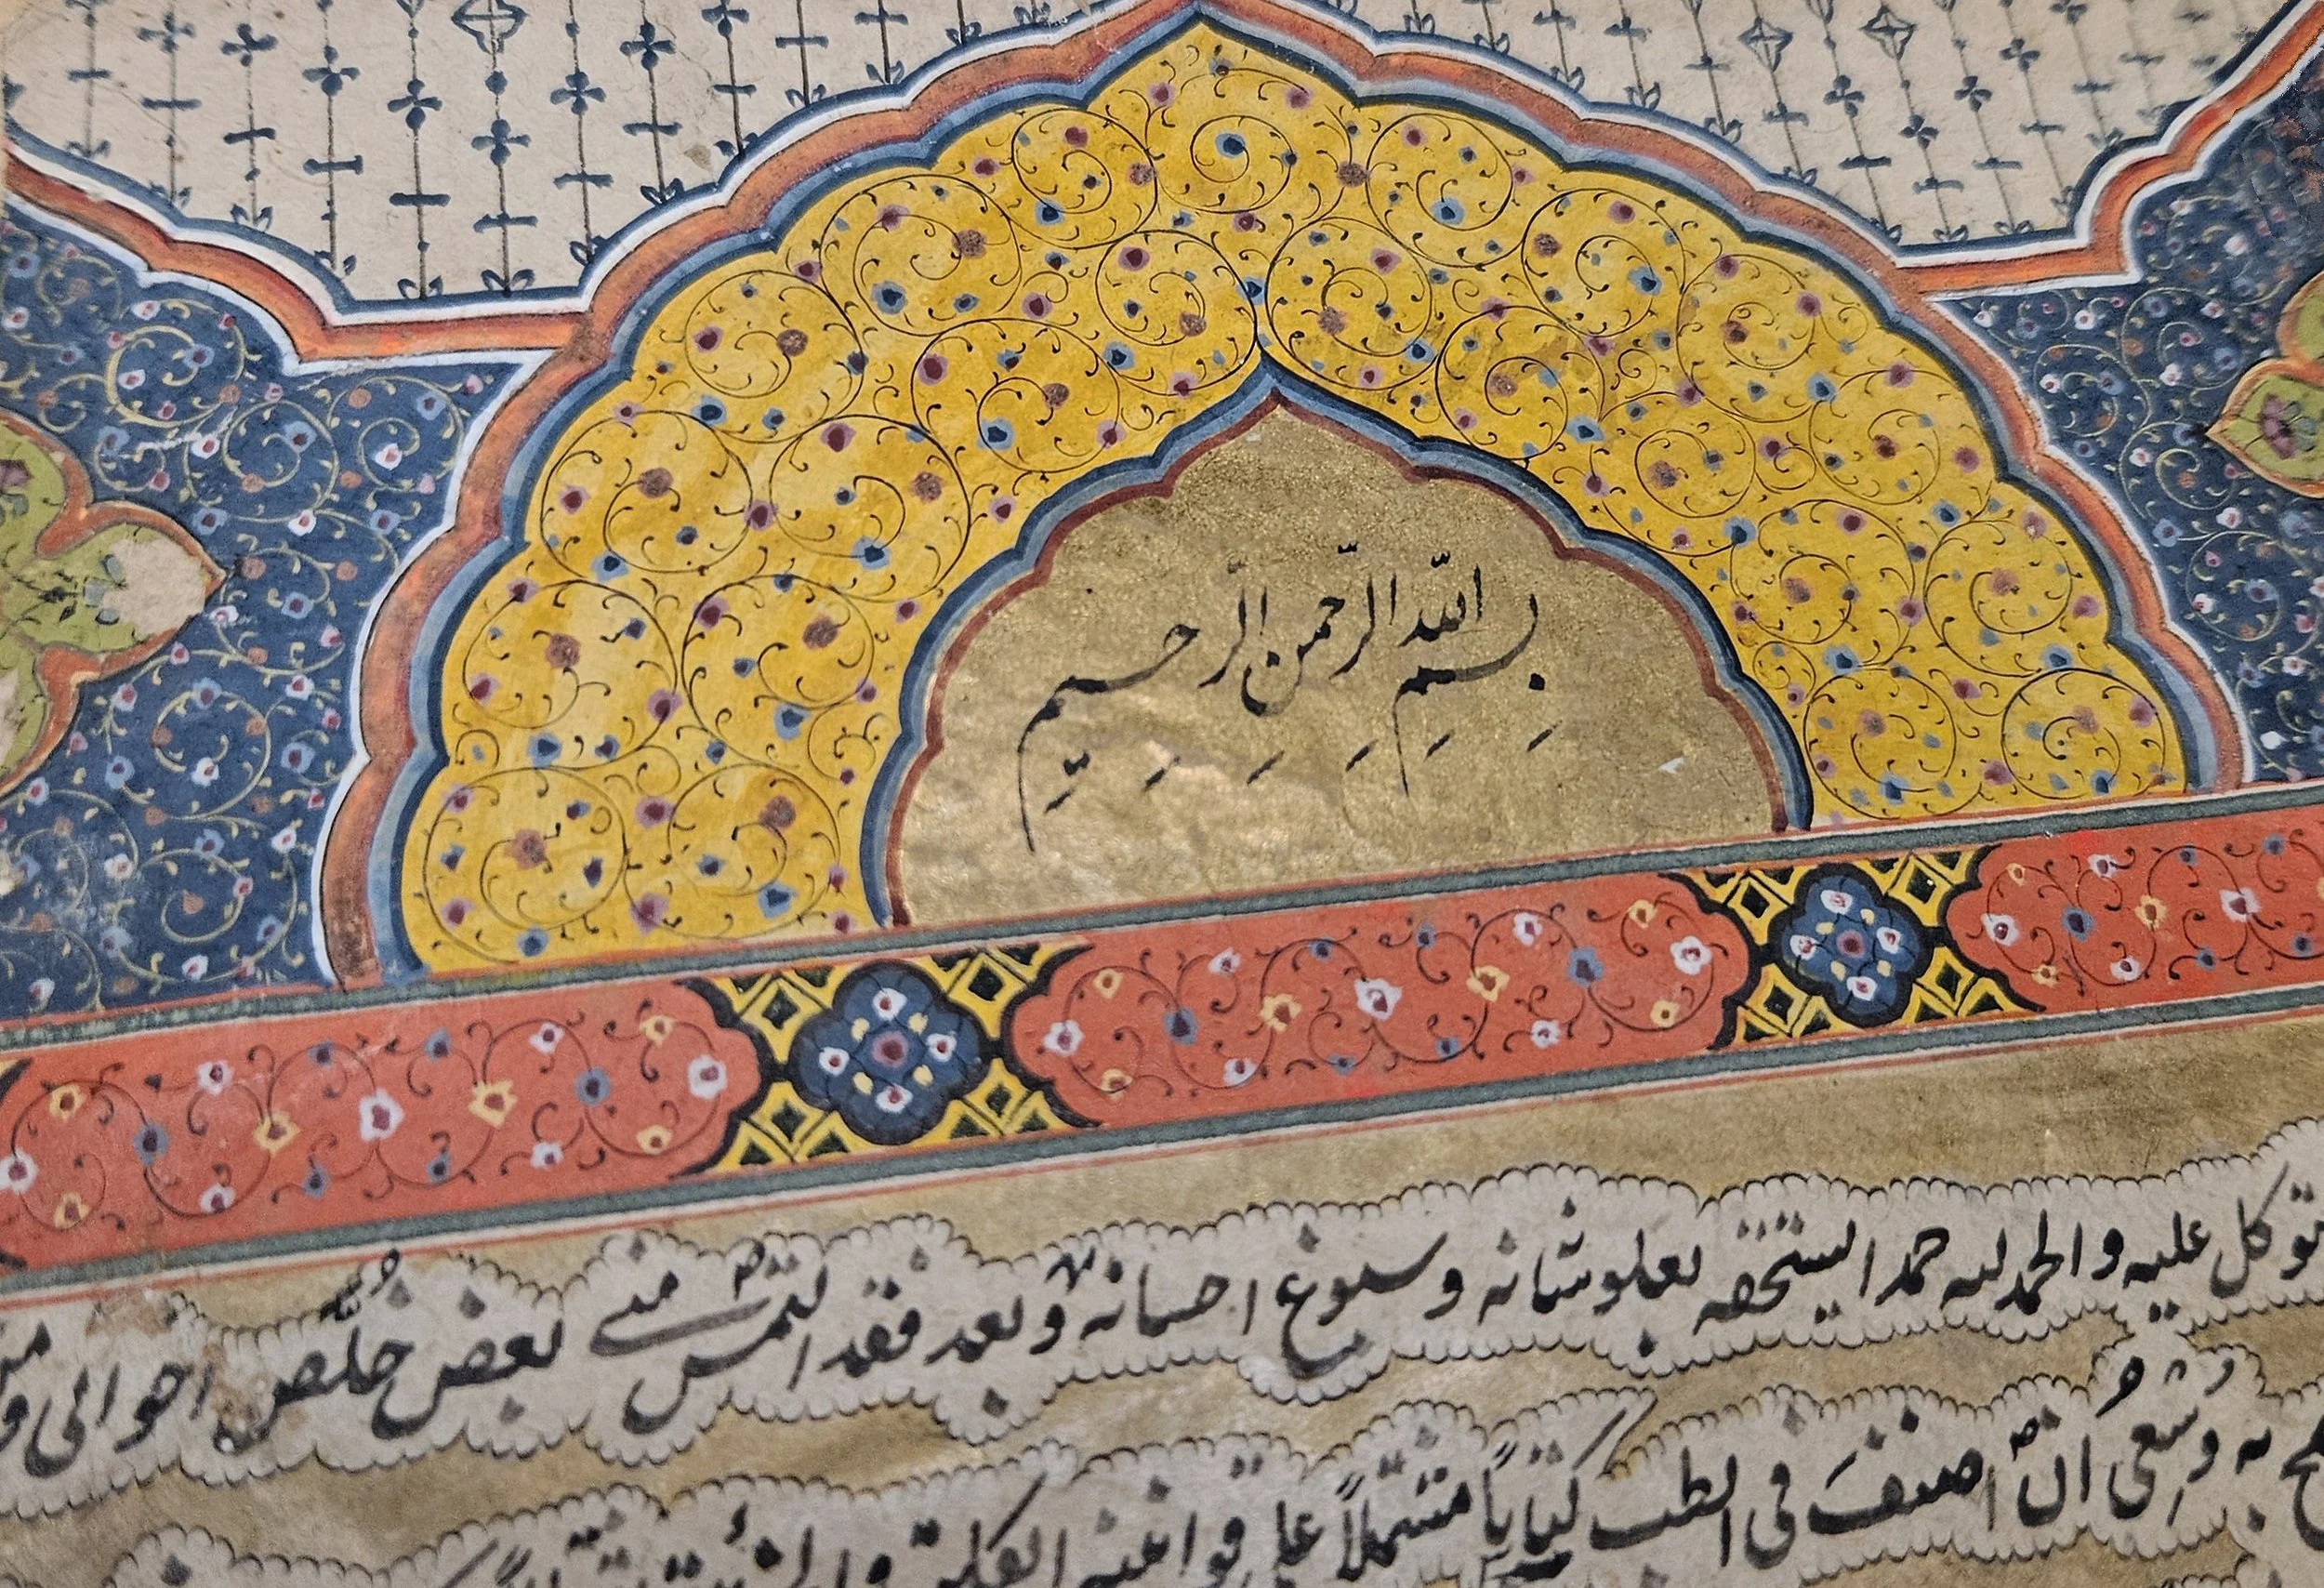 بِسْمِ اللّٰهِ الرَّحْمٰنِ الرَّحِيمِ
توكل عليه والحمد لله حمدا يستحقه بعلو شانه وسبوغ احسانه وبعد فقد التمس منى بعض خلص اخوانى ومن
به وسعى ان اصنف فى الطب كتاباً مشتملاً على قوانينه الكلية والجزئية